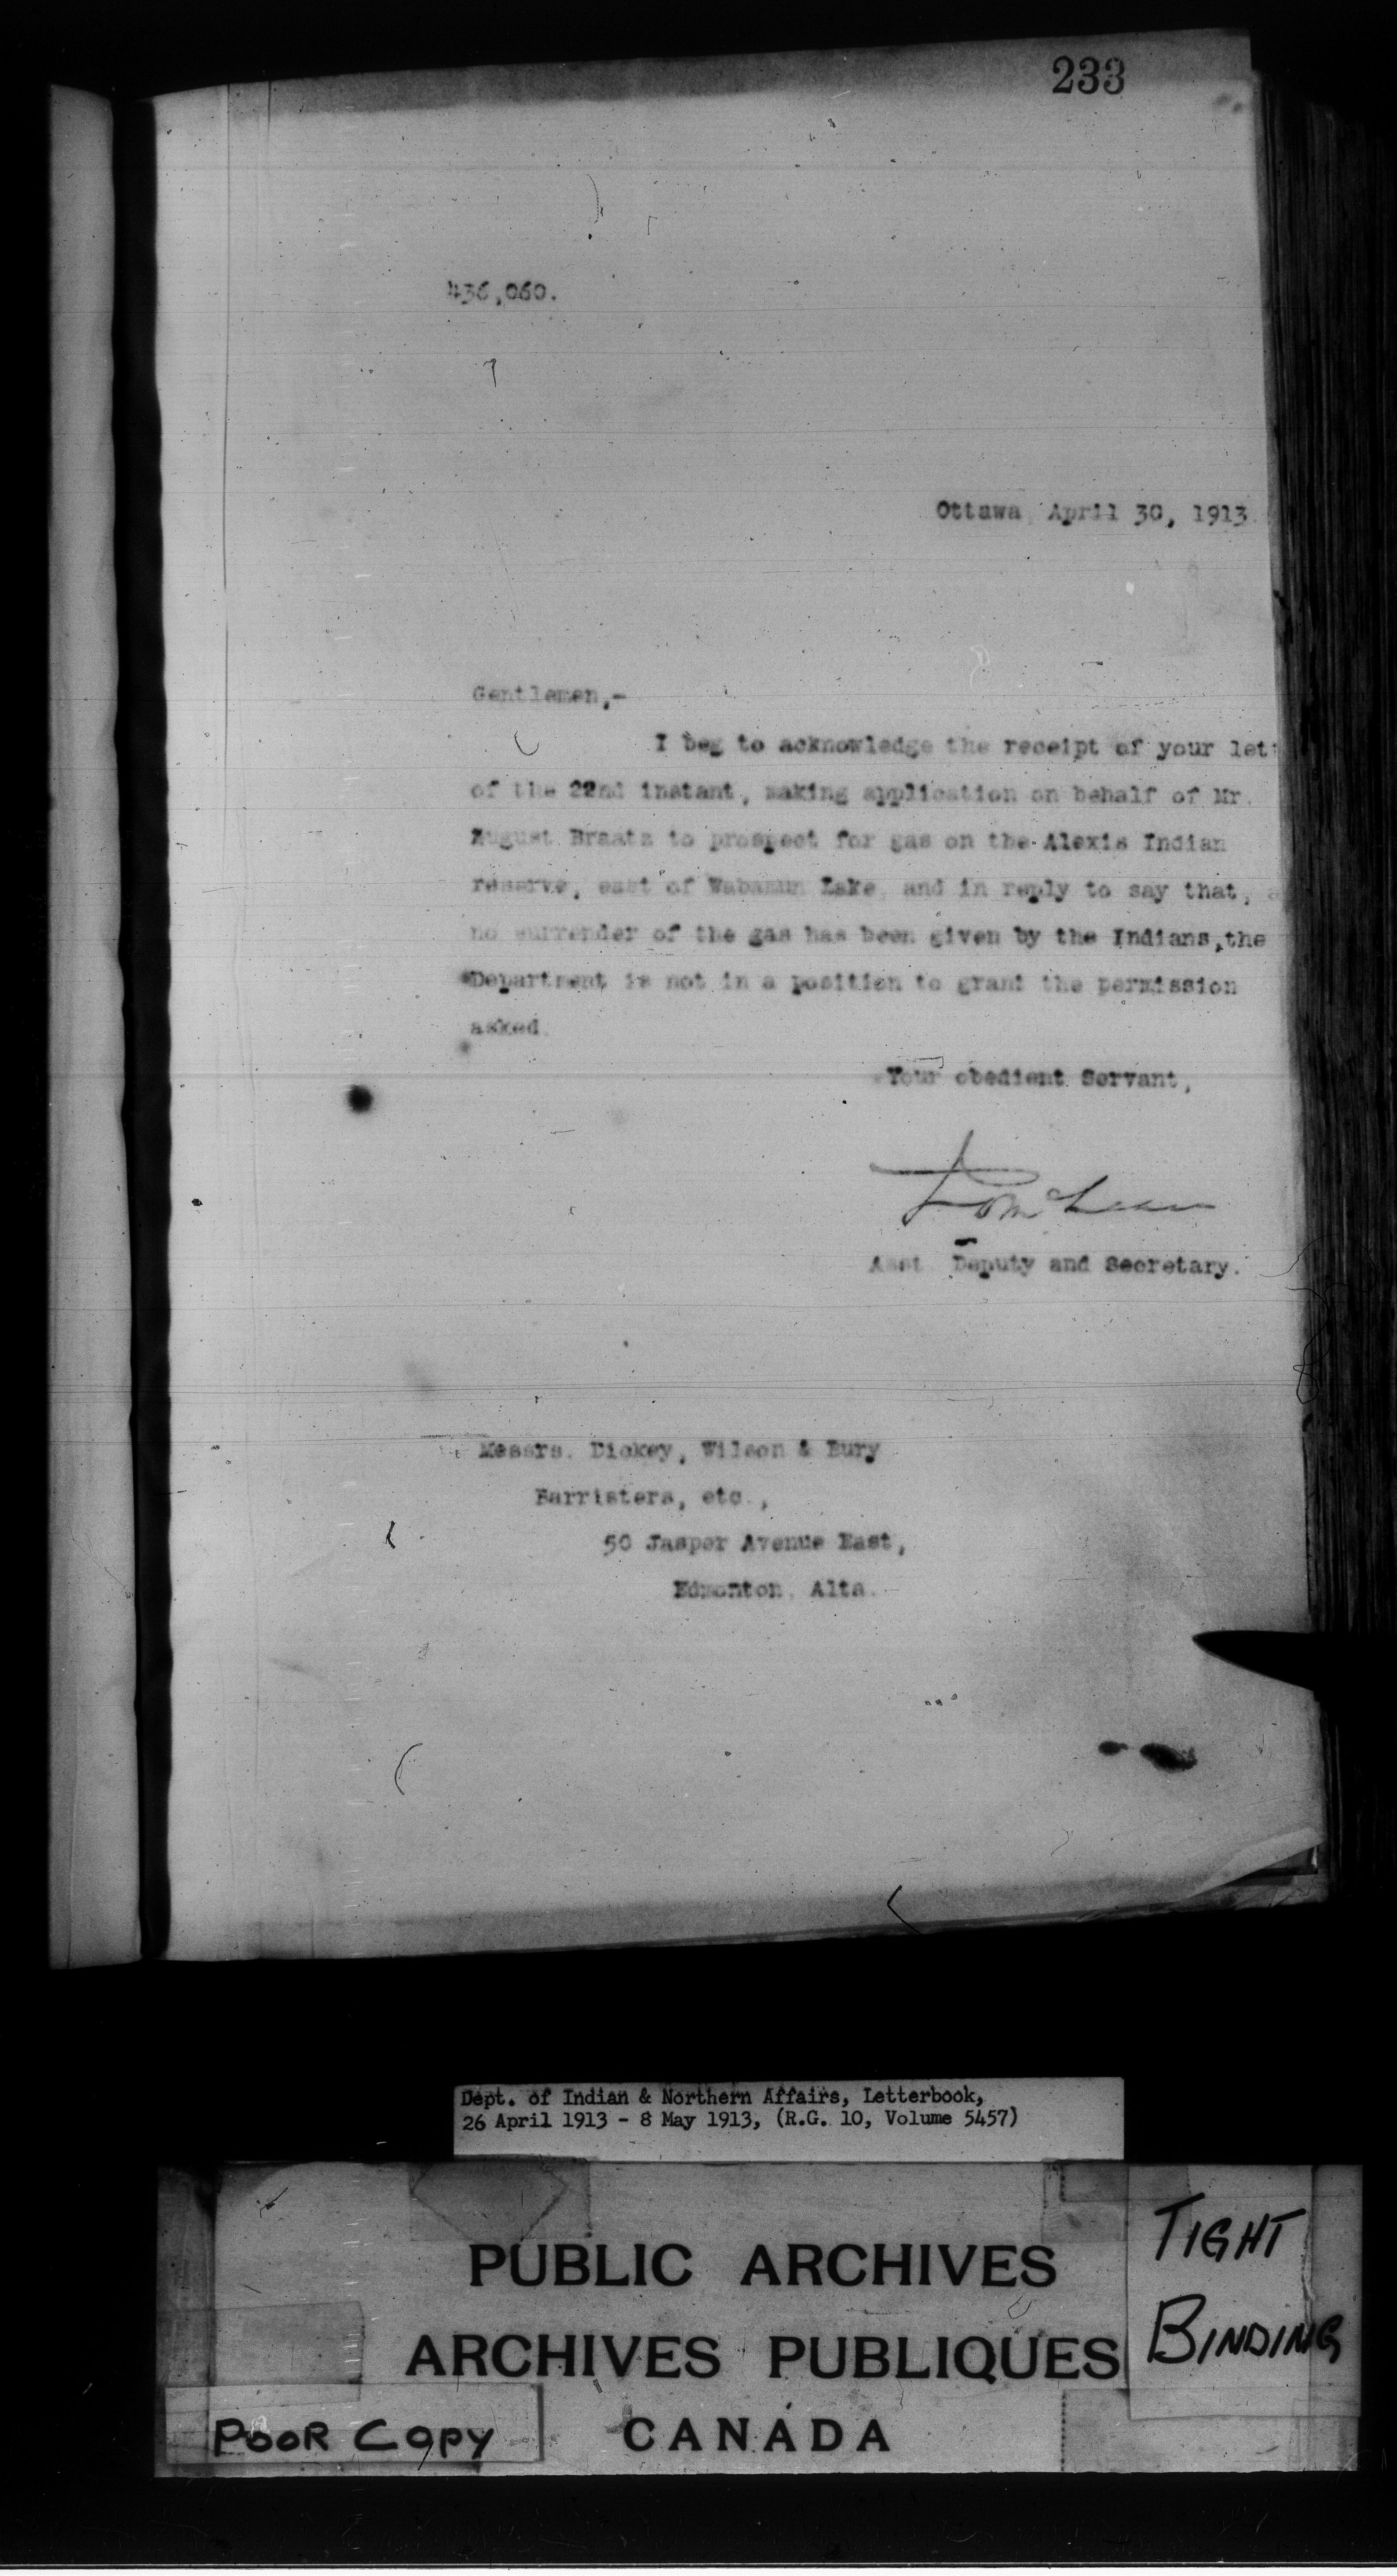 233
436,060.
Ottawa, April 30, 1913
Gentlemen,-
I beg to acknowledge the receipt of your let
of the 22nd instant, making application on behalf of Mr.
August Braatz to prospect for gas on the Alexis Indian
reserve, east of Wabamun Lake, and in reply to say that, a
no surrender of the gas has been given by the Indians, the
Department is not in a position to grant the permission
asked.
Your obedient Servant,
Asst. Deputy and Secretary.
Messrs. Dickey, Wilson & Bury
Barristers, etc.,
50 Jasper Avenue East,
Edmonton, Alta.
Dept. of Indian & Northern Affairs, Letterbook,
26 April 1913 - 8 May 1913, (R.G. 10, Volume 5457)
PUBLIC ARCHIVES
ARCHIVES PUBLIQUES
CANADA
TIGHT
BINDING
POOR COPY